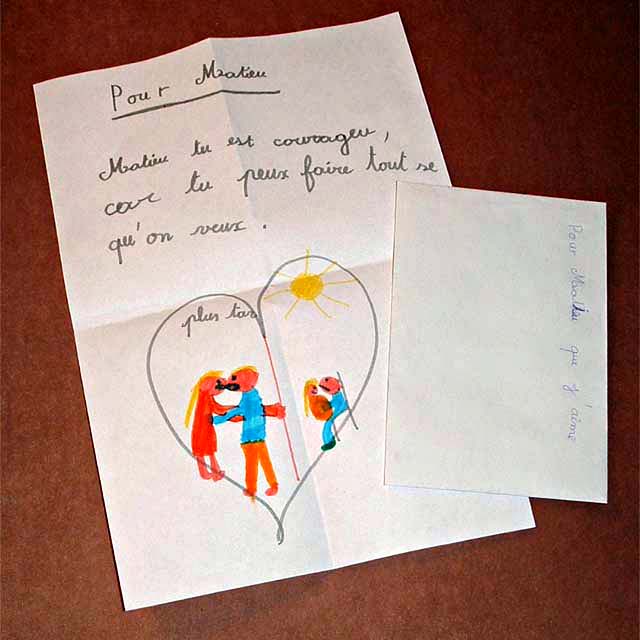 Pour Matieu
Matieu tu est courageu,
car tu peux faire tout se
qu'on veux.
plus tard
Pour Matieu que j'aime